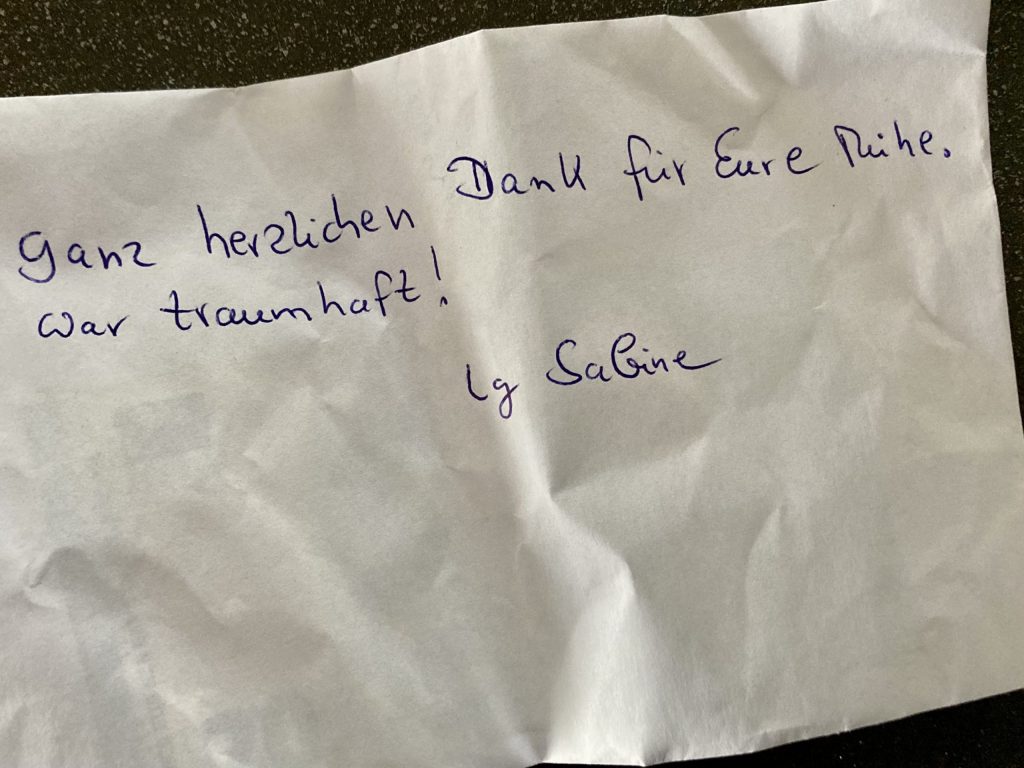 Ganz herzlichen Dank für Eure Mühe.
war traumhaft!
lg Sabine